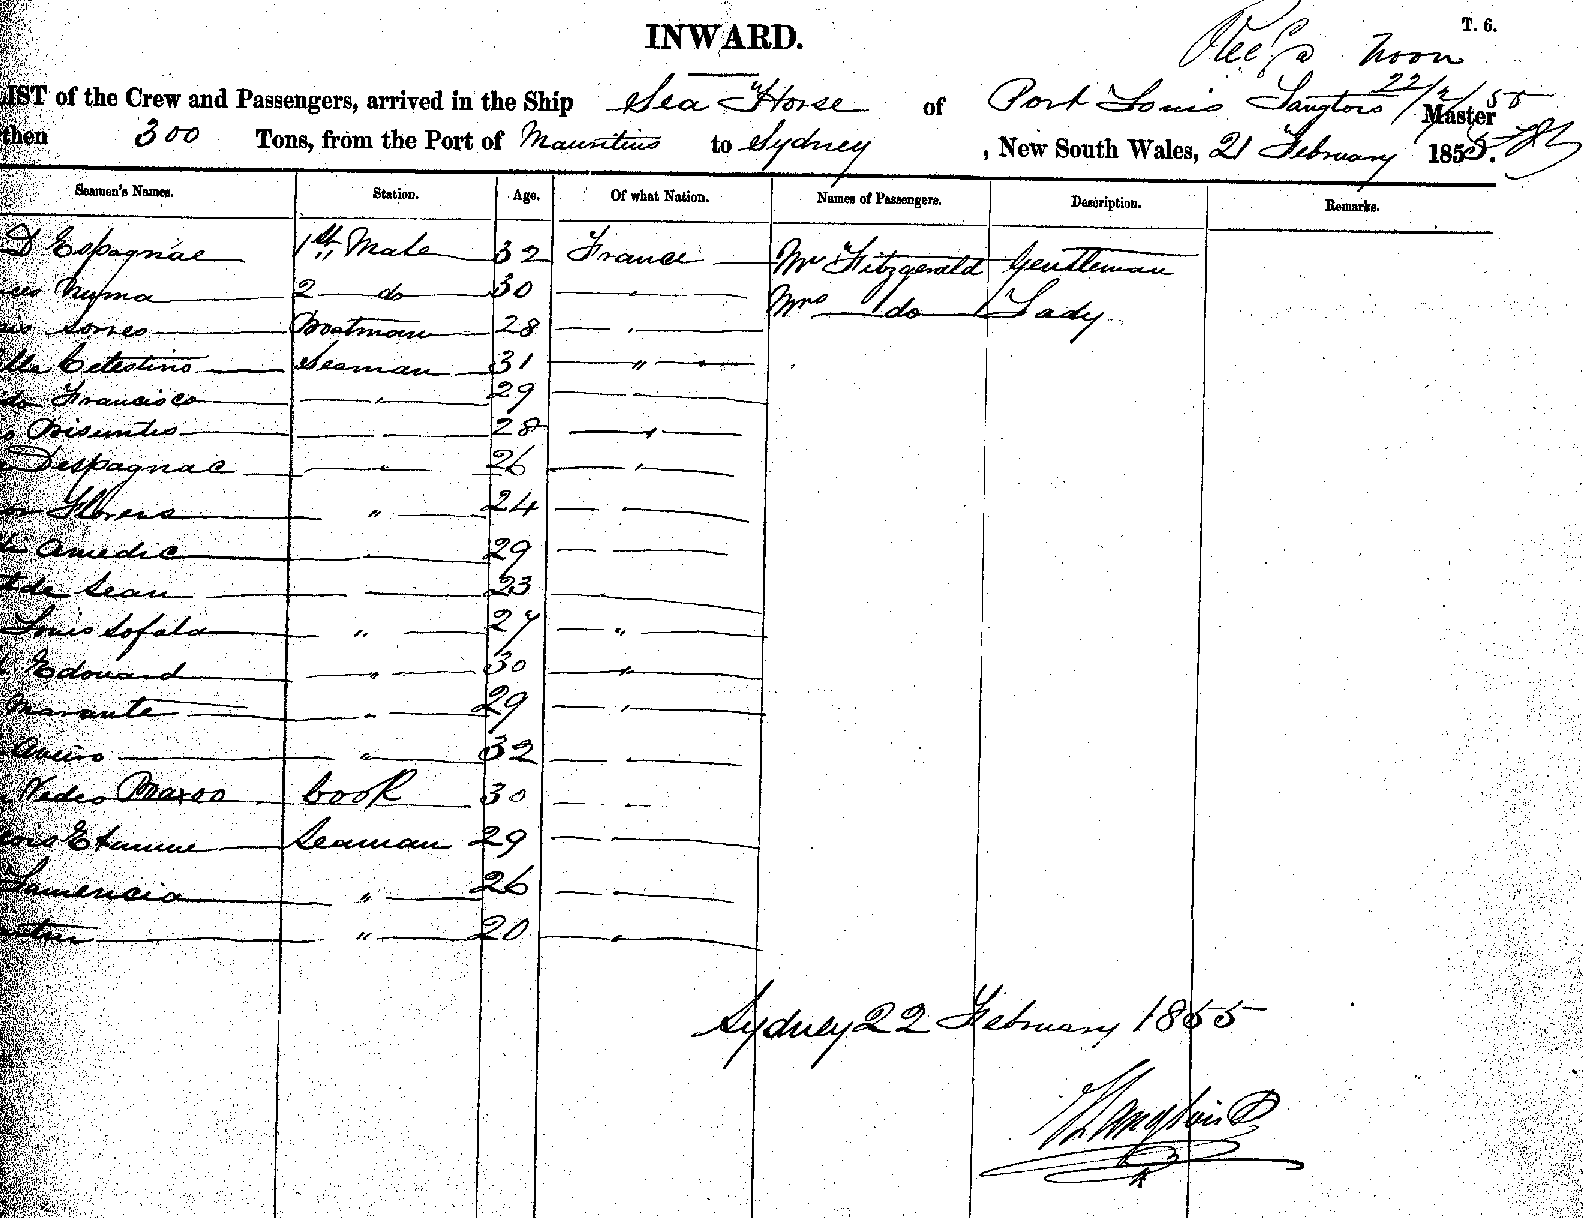 INWARD. T. 6.
Rec'd noon
22/2/55
LIST of the Crew and Passengers, arrived in the Ship Sea Horse of Port Louis Langlois Master
then 300 Tons, from the Port of Mauritius to Sydney , New South Wales, 21 February 1855.
Seamen's Names. Station. Age. Of what Nation. Names of Passengers. Description. Remarks.
D Espagnac 1st Mate 32 France Mr Fitzgerald Gentleman
Numa 2 do 30 " Mrs do Lady
Boatman 28 "
Celestino Seaman 31 "
Francisco " 29
" 28 "
Despagnac " 26 "
Flores " 24 "
Amedie " 29
Jean 23
Louis Sofala " 27 "
Edouard " 30 "
Marante " 29 "
" 32 "
Pedro Cook 30 "
Etienne Seaman 29 "
Lamencia " 26 "
" 20 "
Sydney 22 February 1855
Langlois